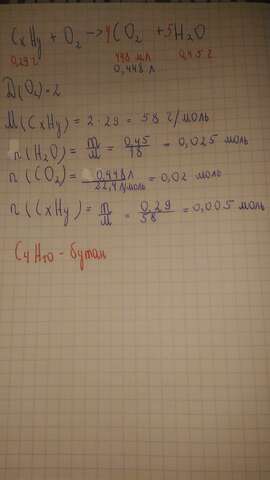 CxHy + O2 → 4CO2 + 5H2O
0,29 г 448 мл 0,45 г
0,448 л
D(O2) = 2
M(CxHy) = 2 · 29 = 58 г/моль
n(H2O) = m/M = 0,45/18 = 0,025 моль
n(CO2) = 0,448 л/22,4 л/моль = 0,02 моль
n(CxHy) = m/M = 0,29/58 = 0,005 моль
C4H10 - бутан